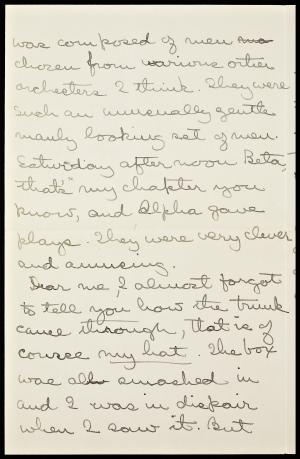 was composed of men
chosen from various other
orchesters I think. They were
such an unusually gentle
manly looking set of men.
Saturday after noon Beta,
that's my chapter you
know, and Alpha gave
plays. They were very clever
and amusing.
Dear me, I almost forgot
to tell you how the trunk
came through, that is of
course my hat. The box
was all smashed in
and I was in dispair
when I saw it. But